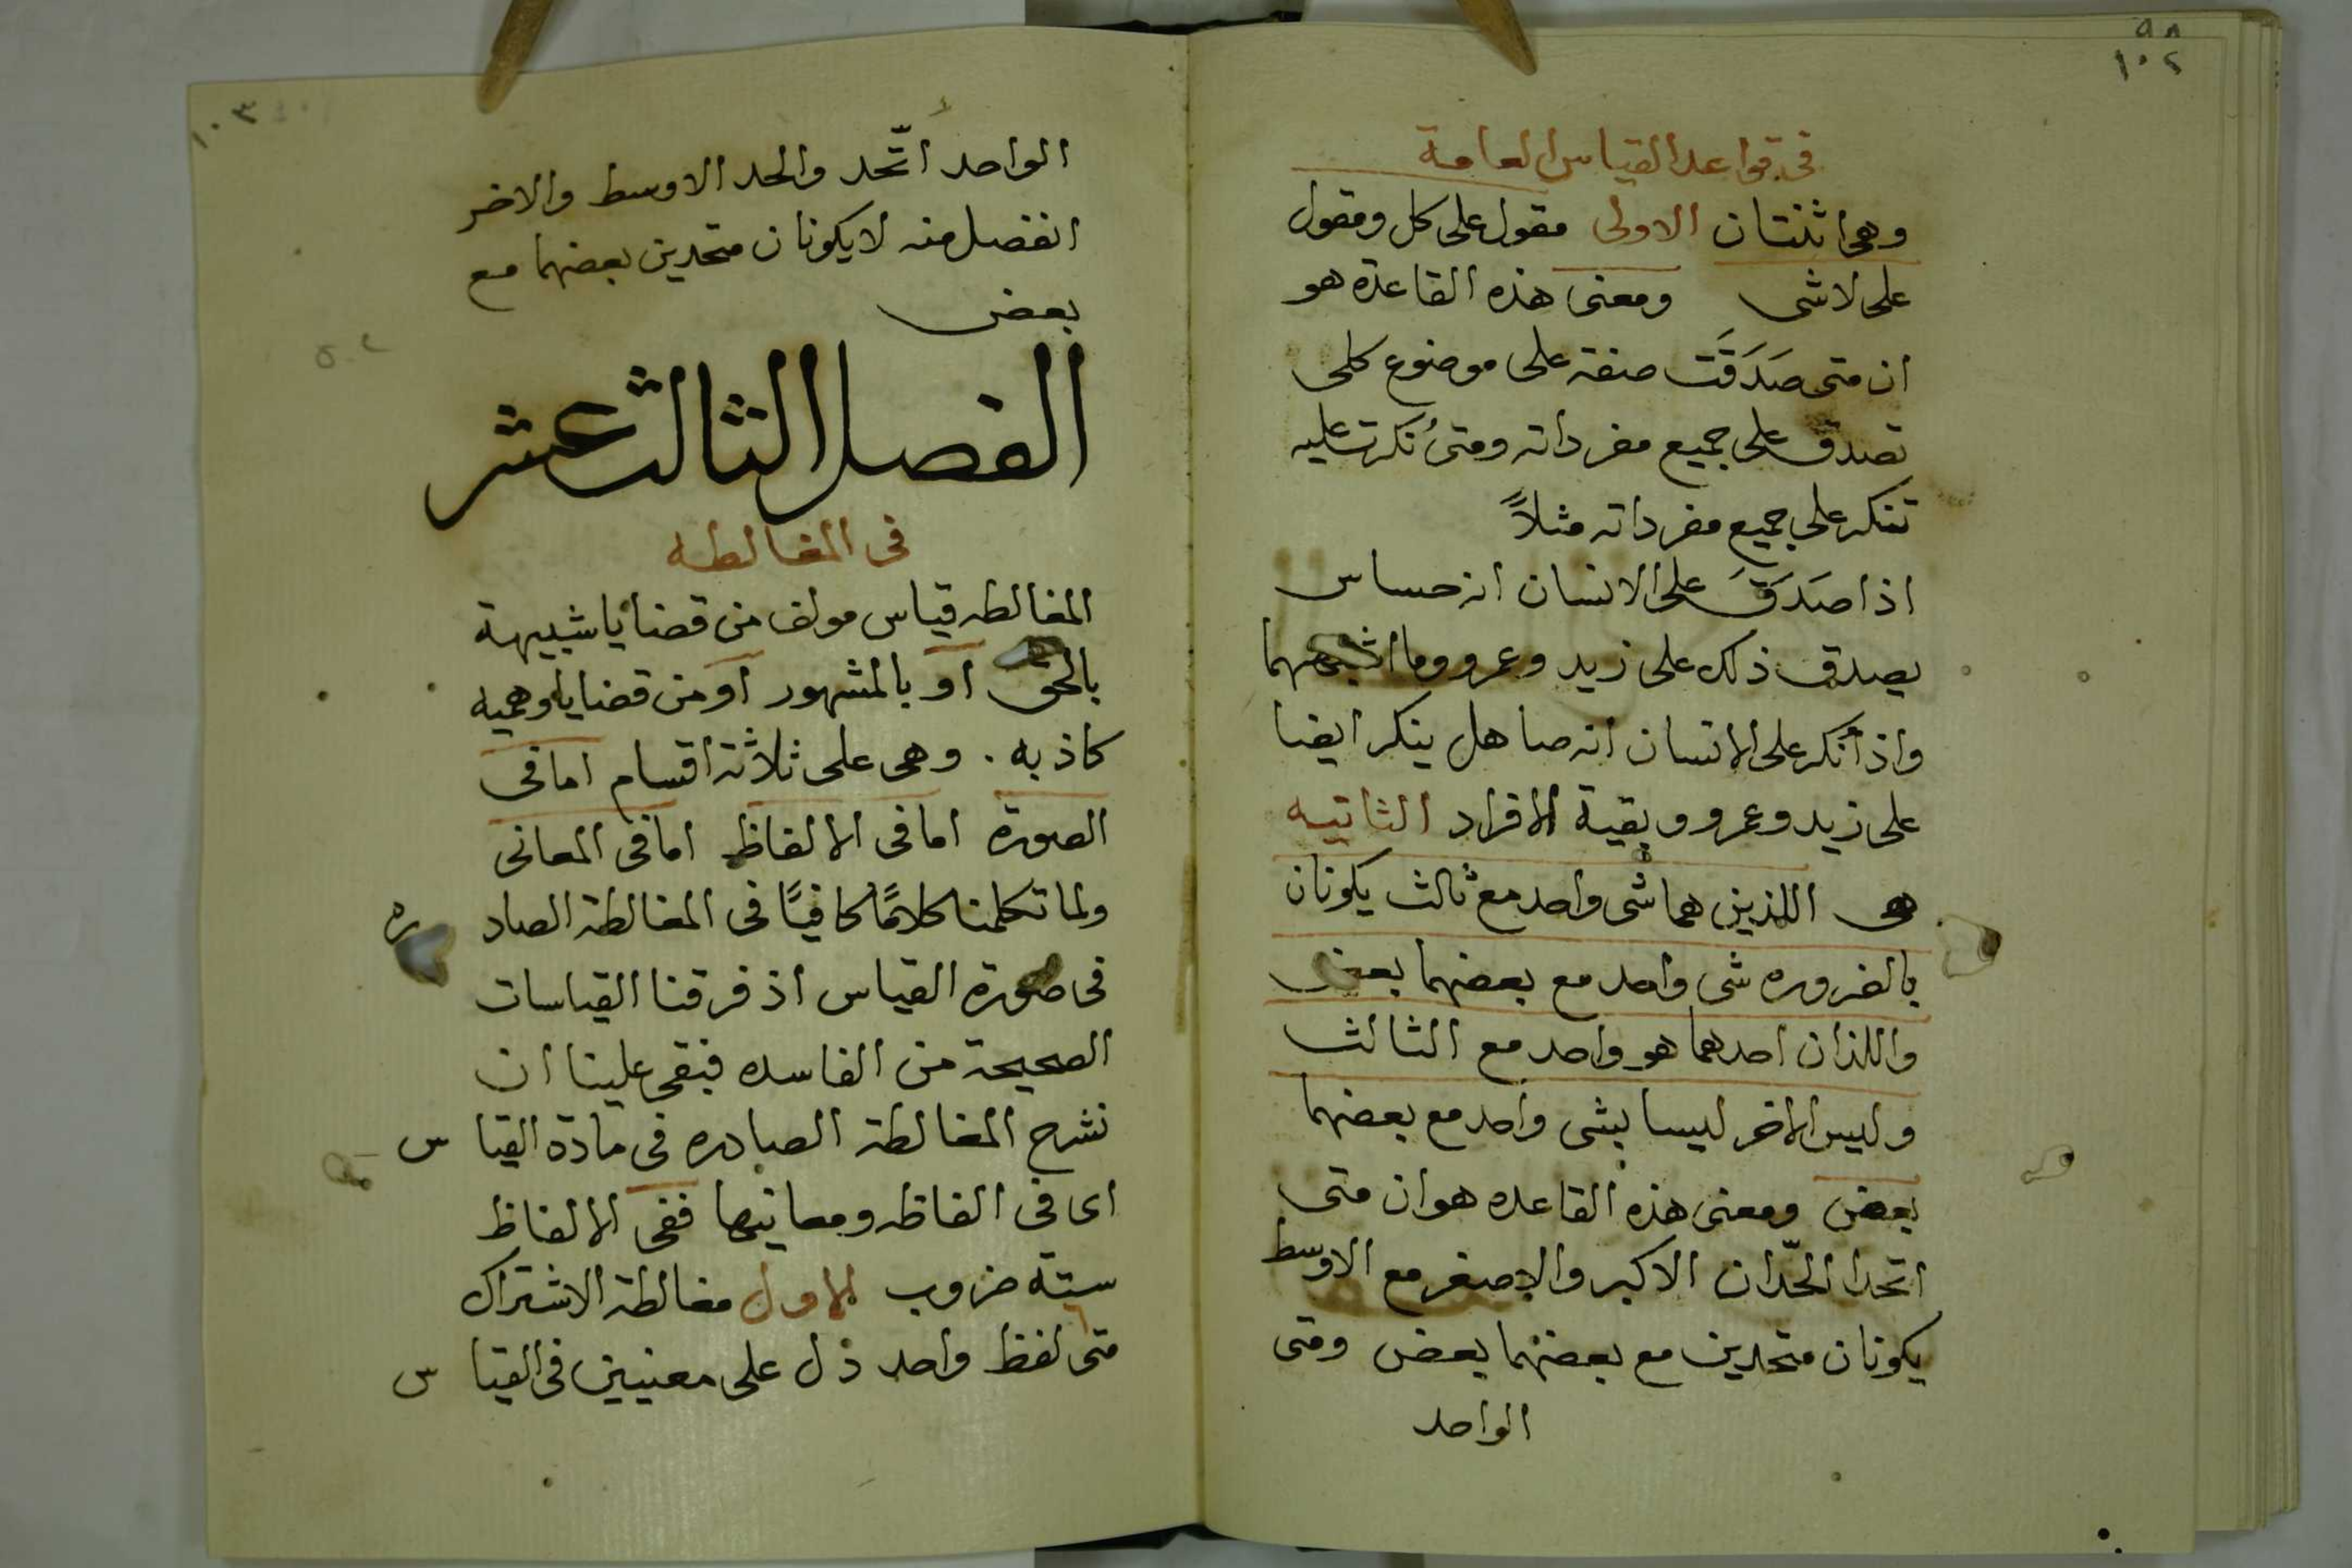 ٩٨
١٠٢
في قواعد القياس العامة
وهي اثنتان الاولى مقول على كل ومقول
على لاشى ومعنى هذه القاعدة هو
ان متى صَدَقَت صفة على موضوع كلى
تصدق على جميع مفرداته ومتى نكرت عليه
تنكر على جميع مفرداته مثلاً
اذا صَدَقَ على الانسان انه حساس
يصدق ذلك على زيد وعمرو وما اشبههما
واذا نكر على الانسان انه صاهل ينكر ايضا
على زيد وعمرو وبقية الافراد الثانيه
هى اللذين هما شى واحد مع ثالث يكونان
بالضروره شى واحد مع بعضهما بعض
واللذان احدهما هو واحد مع الثالث
وليس الاخر ليسا بشى واحد مع بعضهما
بعض ومعنى هذه القاعده هو ان متى
اتحدا الحّدان الاكبر والاصغر مع الاوسط
يكونان متحدين مع بعضهما بعض ومتى
الواحد
١٠٣
الواحد اتّحد والحد الاوسط والاخر
انفصل منه لا يكونان متحدين بعضهما مع
بعض
الفصل الثالث عشر
فى المغالطه
المغالطه قياس مولف من قضايا شبيهة
بالحق او بالمشهور او من قضايا وهميه
كاذبه . وهى على ثلاثة اقسام اما فى
الصورة اما فى الالفاظ اما فى المعانى
ولما تكلمنا كلامًا كافيًا فى المغالطة الصادره
فى صورة القياس اذ فرقنا القياسات
الصحيحة من الفاسده فبقى علينا ان
نشرح المغالطة الصادره فى مادة القياس
اى فى الفاظه ومعانيها ففى الالفاظ
ستة ضروب الاول مغالطة الاشتراك
متى لفظ واحد دل على معنيين فى القياس